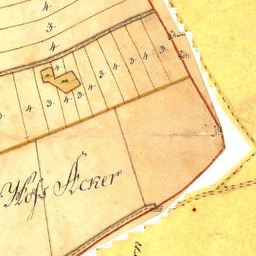 4.
3.
4.
3.
4.
4.
3.
4.
3.
4.
3.
4.
3.
4.
3.
4.
3.
Hofs Äcker